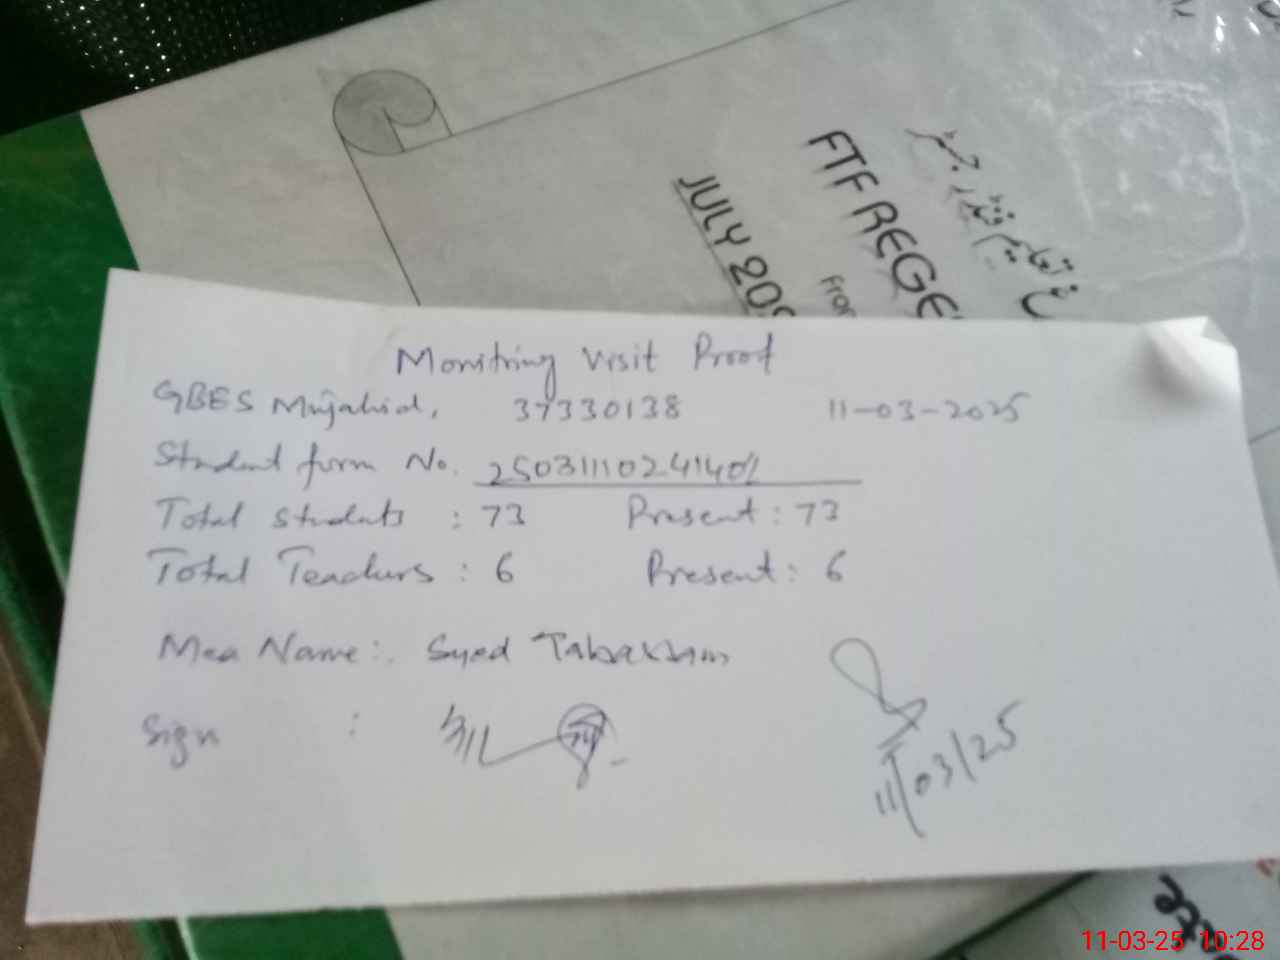 FTF REGE
From
JULY 20
Monitring Visit Proof
GBES Mujahid, 37330138 11-03-2025
Student form No. 2503111024140
Total Students : 73 Present : 73
Total Teachers : 6 Present : 6
Mea Name :. Syed Tabassum
Sign :
11/03/25
11-03-25 10:28